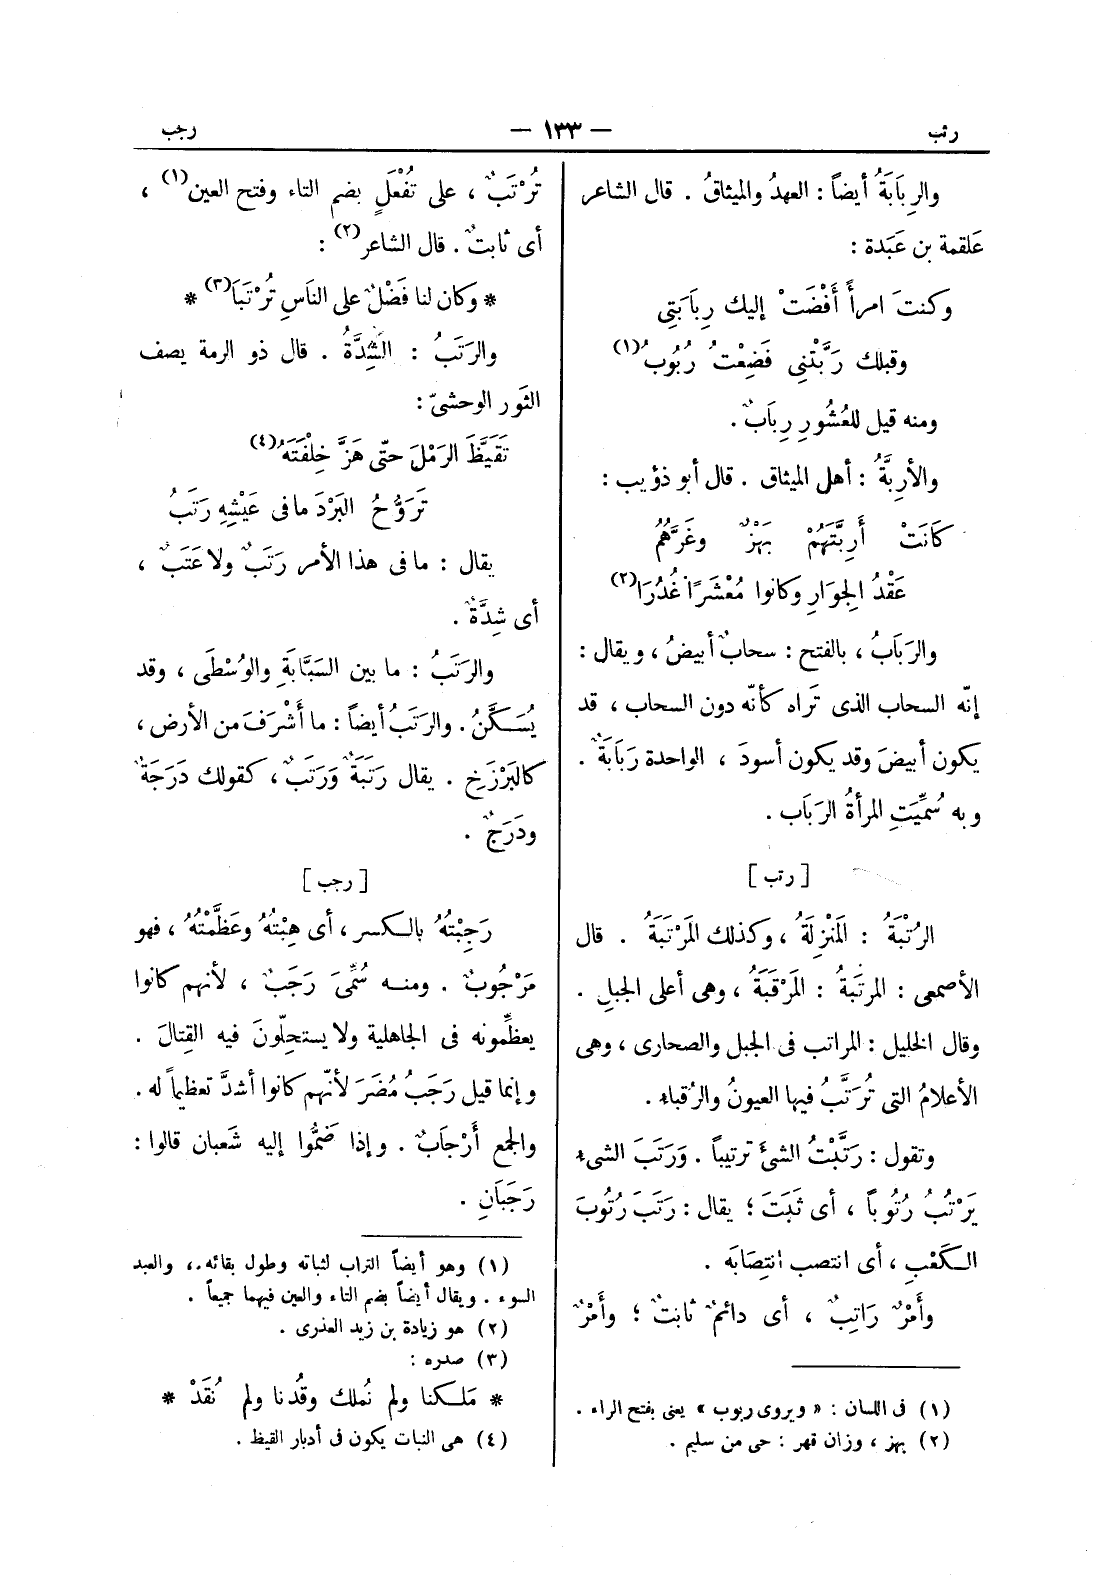 رتب — ١٣٣ — رجب
والرِبَابَةُ أيضاً : العهدُ والميثاقُ . قال الشاعر
عَلقمة بن عَبَدة :
وكنتَ امرأً أَفْضَتْ إليك رِبَابَتِى
وقبلك رَبَّتْنِى فَضِعْتُ رُبُوبُ(١)
ومنه قيل للعُشُورِ رِبَابٌ .
والأَرِبَّةُ : أهل الميثاق . قال أبو ذؤيب :
كَانَتْ أَرِبَّتَهُمْ بَهْزٌ وغَرَّهُمُ
عَقْدُ الجِوَارِ وكانوا مَعْشَرًا غُدُرَا(٢)
والرَبَابُ ، بالفتح : سحابٌ أبيضُ ، ويقال :
إنّه السحاب الذى تراه كأنّه دون السحاب ، قد
يكون أبيضَ وقد يكون أسودَ ، الواحدة رَبَابَةٌ .
وبه سُمِّيَتِ المرأةُ الرَبَاب .
[ رتب ]
الرُتْبَةُ : المَنْزِلَةُ ، وكذلك المَرْتَبَةُ . قال
الأصمعى : المرتَبَةُ : المَرْقَبَةُ ، وهى أعلى الجبلِ .
وقال الخليل : المراتب فى الجبل والصحارى ، وهى
الأعلامُ التى تُرَتَّبُ فيها العيونُ والرُقباء .
وتقول : رَتَّبْتُ الشىَٔ ترتيباً . وَرَتَبَ الشىء
يَرْتُبُ رُتُوباً ، أى ثَبَتَ ؛ يقال : رَتَبَ رُتُوبَ
الكَعْبِ ، أى انتصب انتِصَابَه .
وأَمْرٌ رَاتِبٌ ، أى دائمٌ ثابتٌ ؛ وأَمْرٌ
(١) فى اللسان : « ويروى ربوب » يعنى بفتح الراء .
(٢) بهز ، وزان قهر : حى من سليم .
تُرْتَبٌ ، على تُفْعَلٍ بضم التاء وفتح العين(١) ،
أى ثابتٌ . قال الشاعر(٢) :
* وكان لنا فَضْلٌ على الناسِ تُرْتَبَا(٣) *
والرَتَبُ : الشِدَّةُ . قال ذو الرمة يصف
الثور الوحشىّ :
تَقَيَّظَ الرَمْلَ حتّى هَزَّ خِلْفَتَهُ(٤)
تَرَوُّحُ البَرْدَ مافى عَيْشِهِ رَتَبُ
يقال : مافى هذا الأمر رَتَبٌ ولاعَتَبٌ ،
أى شِدَّةٌ .
والرَتَبُ : ما بين السَبَّابَةِ والوُسْطَى ، وقد
يُسَكَّنُ . والرَتَبُ أيضاً : ما أَشْرَفَ من الأرض ،
كالبَرْزَخِ . يقال رَتَبَةٌ وَرَتَبٌ ، كقولك دَرَجَةٌ
ودَرَجٌ .
[ رجب ]
رَجِبْتُهُ بالكسر ، أى هِبْتُهُ وعَظَّمْتُهُ ، فهو
مَرْجُوبٌ . ومنه سُمِّىَ رَجَبٌ ، لأنهم كانوا
يعظِّمونه فى الجاهلية ولا يستحِلّونَ فيه القِتالَ .
وإنما قيل رَجَبُ مُضَرَ لأنّهم كانوا أشدَّ تعظيماً له .
والجمع أَرْجَابٌ . وإذا ضَمُّوا إليه شَعبان قالوا :
رَجَبَانِ .
(١) وهو أيضاً التراب لثباته وطول بقائه ، والعبد
السوء . ويقال أيضاً بضم التاء والعين فيهما جميعاً .
(٢) هو زيادة بن زيد العذرى .
(٣) صدره :
* مَلكنا ولم نُملك وقُدنا ولم نُقَدْ *
(٤) هى النبات يكون فى أدبار القيظ .